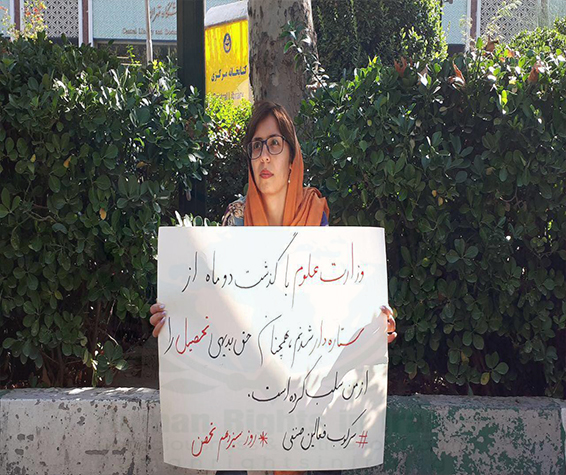 کتابخانه مرکزی
وزارت علوم با گذشت دو ماه از
ستاره دار شدنم، همچنان حق بدیهی تحصیل را
از من سلب کرده است.
#سرکوب فعالین صنفی *روز سیزدهم تحصن